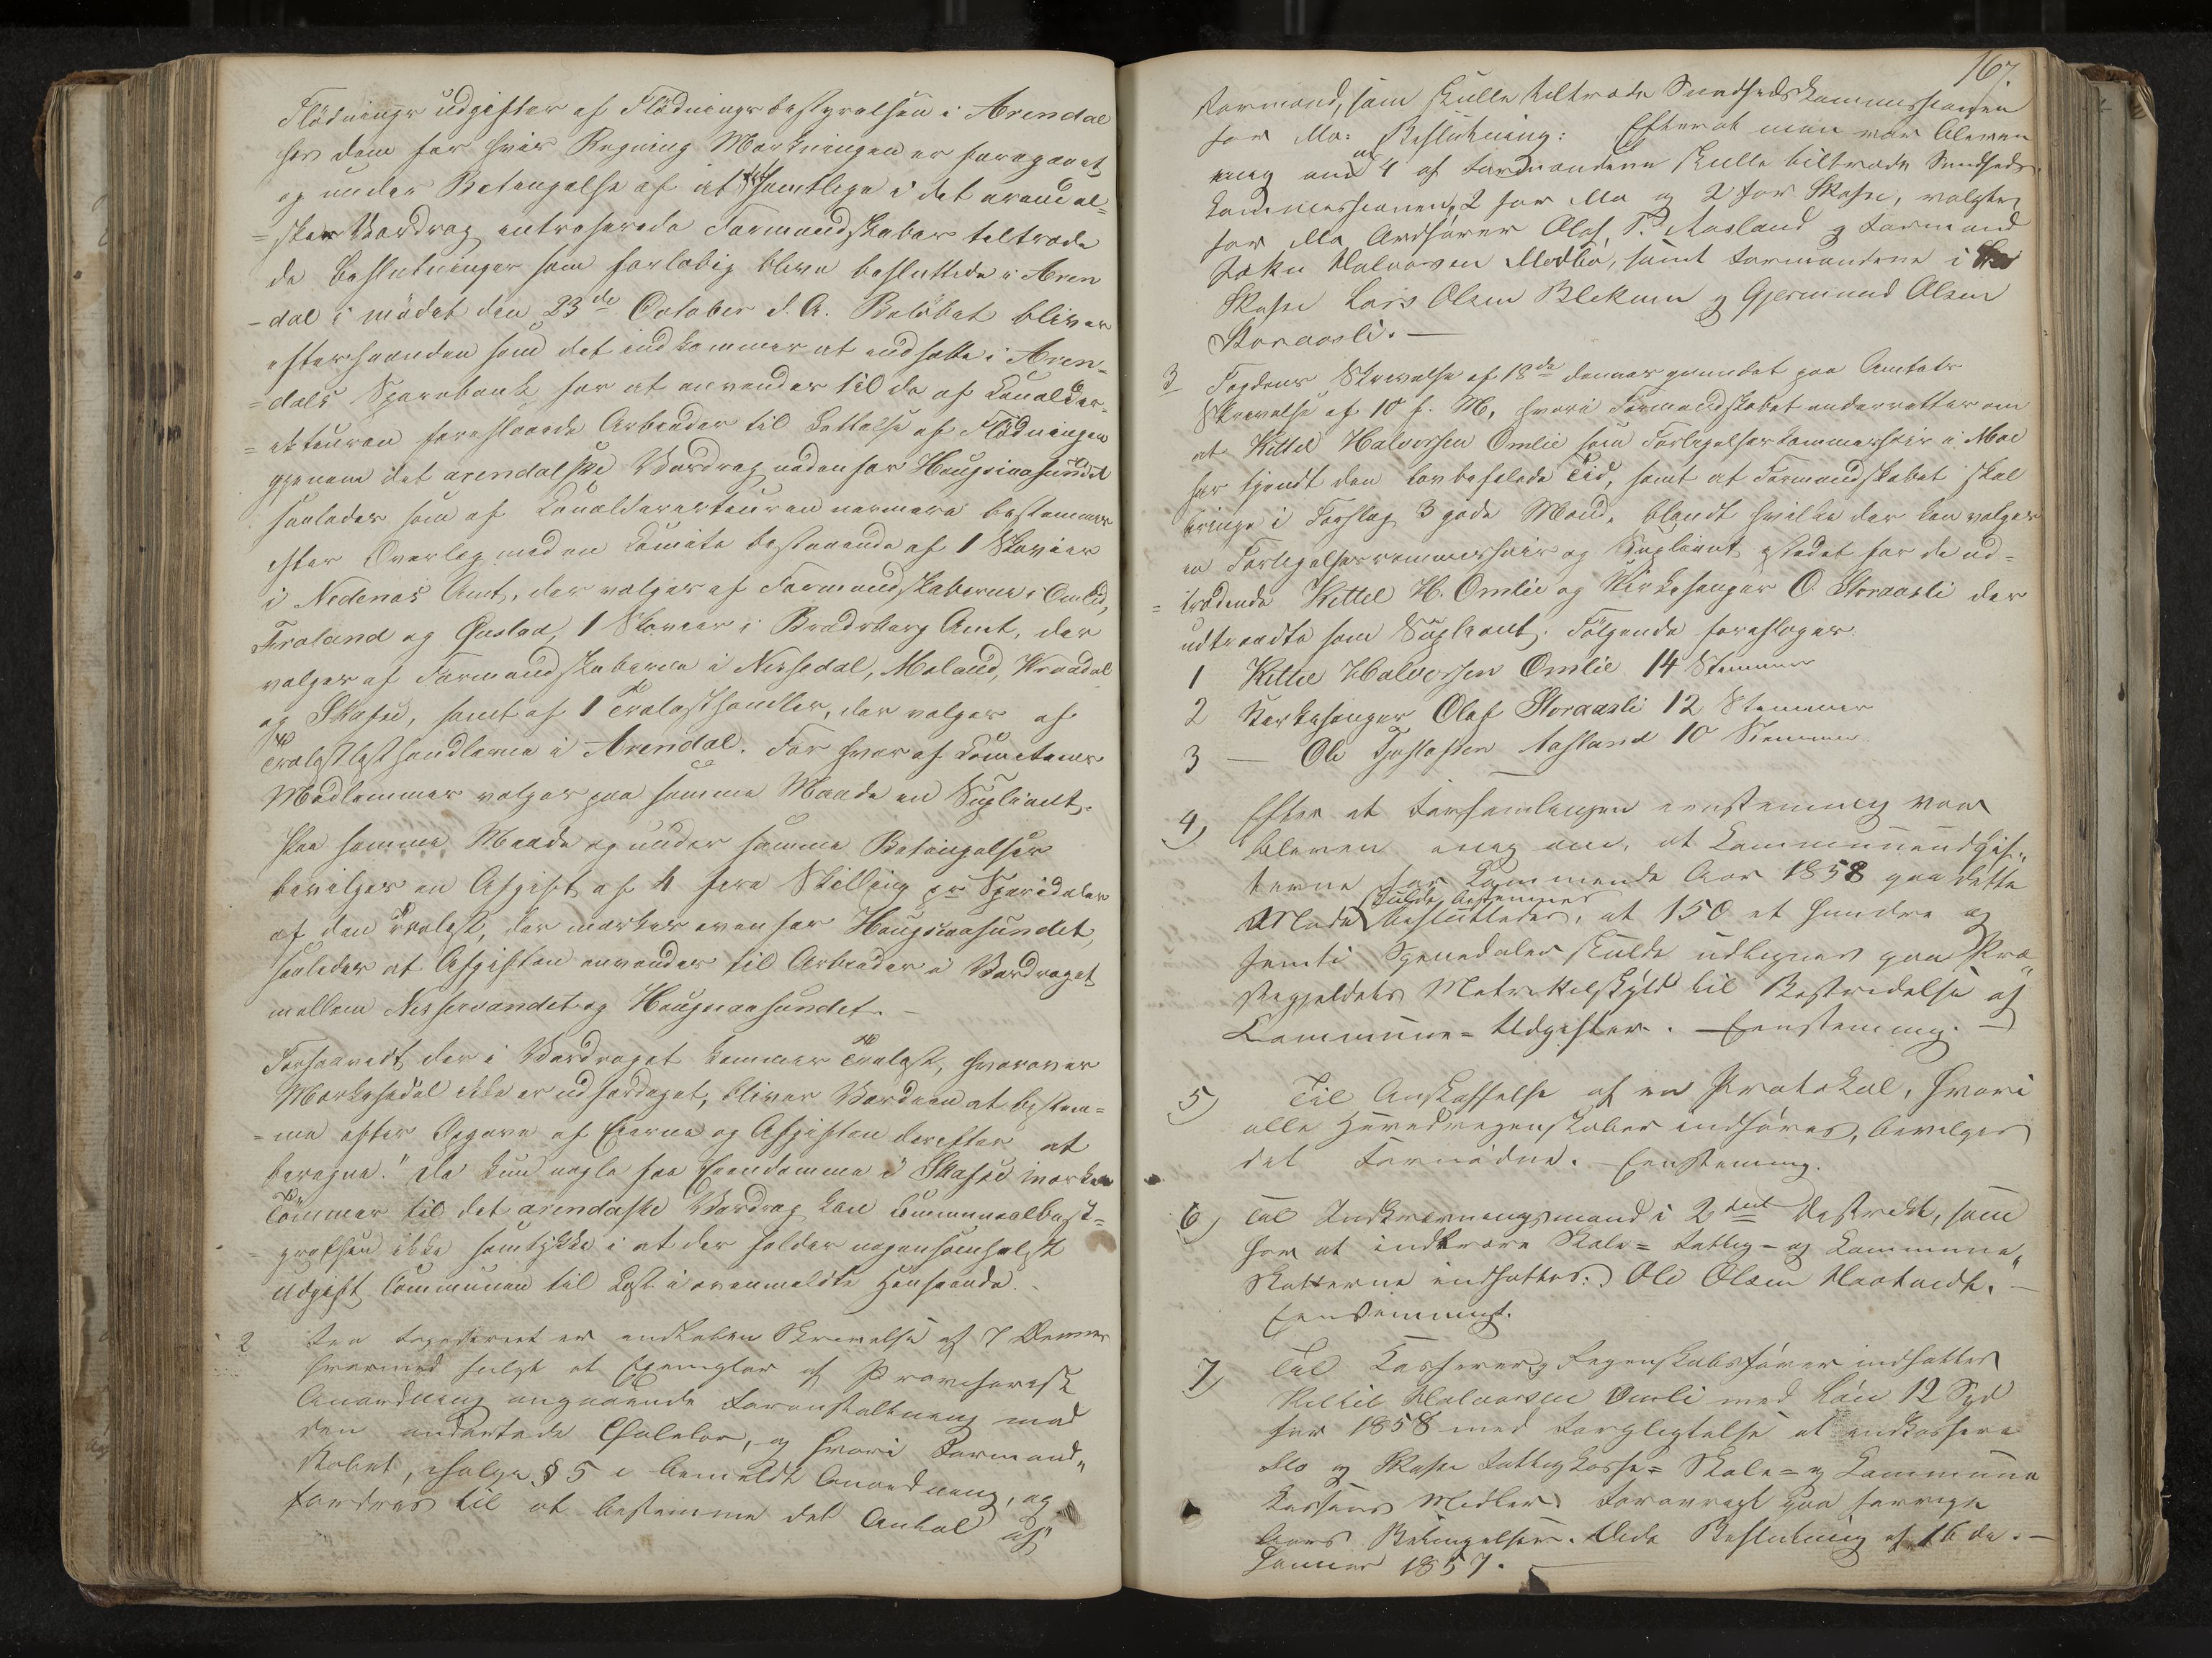 Flødnings udgifter af Flødningsbestyrelsen i Arendal
hos dem for hvis Regning Mærkningen er foregaaet
og under Betingelse af at samtlige i det arendal=
=ske Vasdrag intreserede Formandskaber tiltræde
de Beslutninger som forløbig bleve besluttede i Aren
-dal i mødet den 23de October d. A. Beløbet bliver
efterhaanden som det indkommer at indsætte i Aren=
=dals Sparebank for at anvendes til de af Canaldir=
=ekteuren foreslaaede Arbeider til Lettelse af Flødningen
gjennem det arendalske Vasdrag nedenfor Haugsiaasundet
saaledes som af Canaldirecteuren nærmere bestemmes
efter Overlæg med en Comite bestaaende af 1 Skoveier
i Nedenæs Amt, der vælges af Formandskaberne i Omlid,
Froland og Øiestad, 1 Skoveier i Bradsberg Amt, der
vælges af Formandskaberne i Nissedal, Moland, Hvidesøe
og Skafse, samt af 1 Trælasthandler, der vælges af
Trælasthandlerne i Arendal. For hver af Comiteens
Medlemmer vælges paa samme Maade en Supleant.
Paa samme Maade og under samme Betingelser
bevilges en Afgift af 4 fire Skilling pr Speciedaler
af den Trælast, der mærkes ovenfor Haugsiaasundet,
saaledes at Afgiften anvendes til Arbeider i Vasdraget
mellem Nisservandet og Haugsiaasundet. -
Forsaavidt der i Vasdraget kommer Trælast, hvorover
Mærkesedel ikke er udfærdiget, bliver Værdien at bestem=
=me efter Opgave af Eierne og Afgiften derefter at
beregne." Da kun nogle faa Eiendomme i Skafse mærker
Tømmer til det arendalske Vasdrag kan Communalbest=
=yrelsen ikke samtykke i at der falder nogensomhelst
Udgift Communen til Last i ovenmeldte Henseende. -
2 Fra Fogderiet er indløben Skrivelse af 7 Dennes
hvormed fulgt et Exemplar af Provisorisk
Anordning angaaende Foranstaltning mod
den indartede Cholera, og hvori Formand„
skabet, ifølge § 5 i bemeldte Anordning, og
fordres til at bestemme det Antal af
167.
Formænd, som skulle tiltræde Sundhedskommissionen
for Mo: Beslutning: Efterat man var bleven
enig om at 4 af Formændene skulle tiltræde Sundheds
kommissionen, 2 for Mo og 2 for Skafse, valgtes
for Mo Ordfører Olaf T. Aasland og Formand
Halvorsen Modbø, samt Formændene i
Skafse Lars Olsen Blekum og Gjermund Olsen
Storaasli. -
3 Fogdens Skrivelse af 18de dennes grundet paa Amtets
Skrivelse af 10 f. M, hvori Formandskabet underrettes om
at Kittel Halvorsen Omlie som Forligelseskommissair i Moe
har tjendt den lovbefalede Tid, samt at Formandskabet skal
bringe i Forslag 3 gode Mænd, blandt hvilke der kan vælges
en Forligelseskommissair og Supleant istedet for de ud=
=trædende Kittel H. Omlie og Kirkesanger O. Storaasli der
udtraadte som Supleant. Følgende foreslages
1 Kittil Halvorsen Omlie 14 Stemmer
2 Kirkesanger Olaf Storaasli 12 Stemmer
3 — Ole Aasland 10 Stemmer
4) Efter at Forsamlingen eenstemmig var
bleven enig om, at Kommuneudgif„
terne for kommende Aar 1858 paa dette
Møde skulde bestemmes besluttedes, at 150 et hundre og
femti Speciedaler skulde udlignes paa Præ„
stegjeldets Matrikelskyld til Bestridelse af
Commune=Udgifter. - Eenstemmig. -
5) Til Anskaffelse af en Protokol, hvori
alle Herredregenskaber indføres, bevilges
det Fornødne. Eenstemmig.
6) Til Indkrævningsmand i 2det Distrikt, som
har at indkræve Skole= Fattig- og Kommune„
Skatterne indsættes: Ole Olsen -
Eenstemmigt.
7) Til Kasserer og Regenskabsfører indsættes
Kittil Halvorsen Omli med Løn 12 Spd
for 1858 med Forpligtelse at indkassere
Mo og Skafse Fattigkasse= Skole= og Kommune
kassens Midler. Forøvrigt paa forrige
Aars Betingelser. Vide Beslutning af 16 de. -
Januar 1857. -